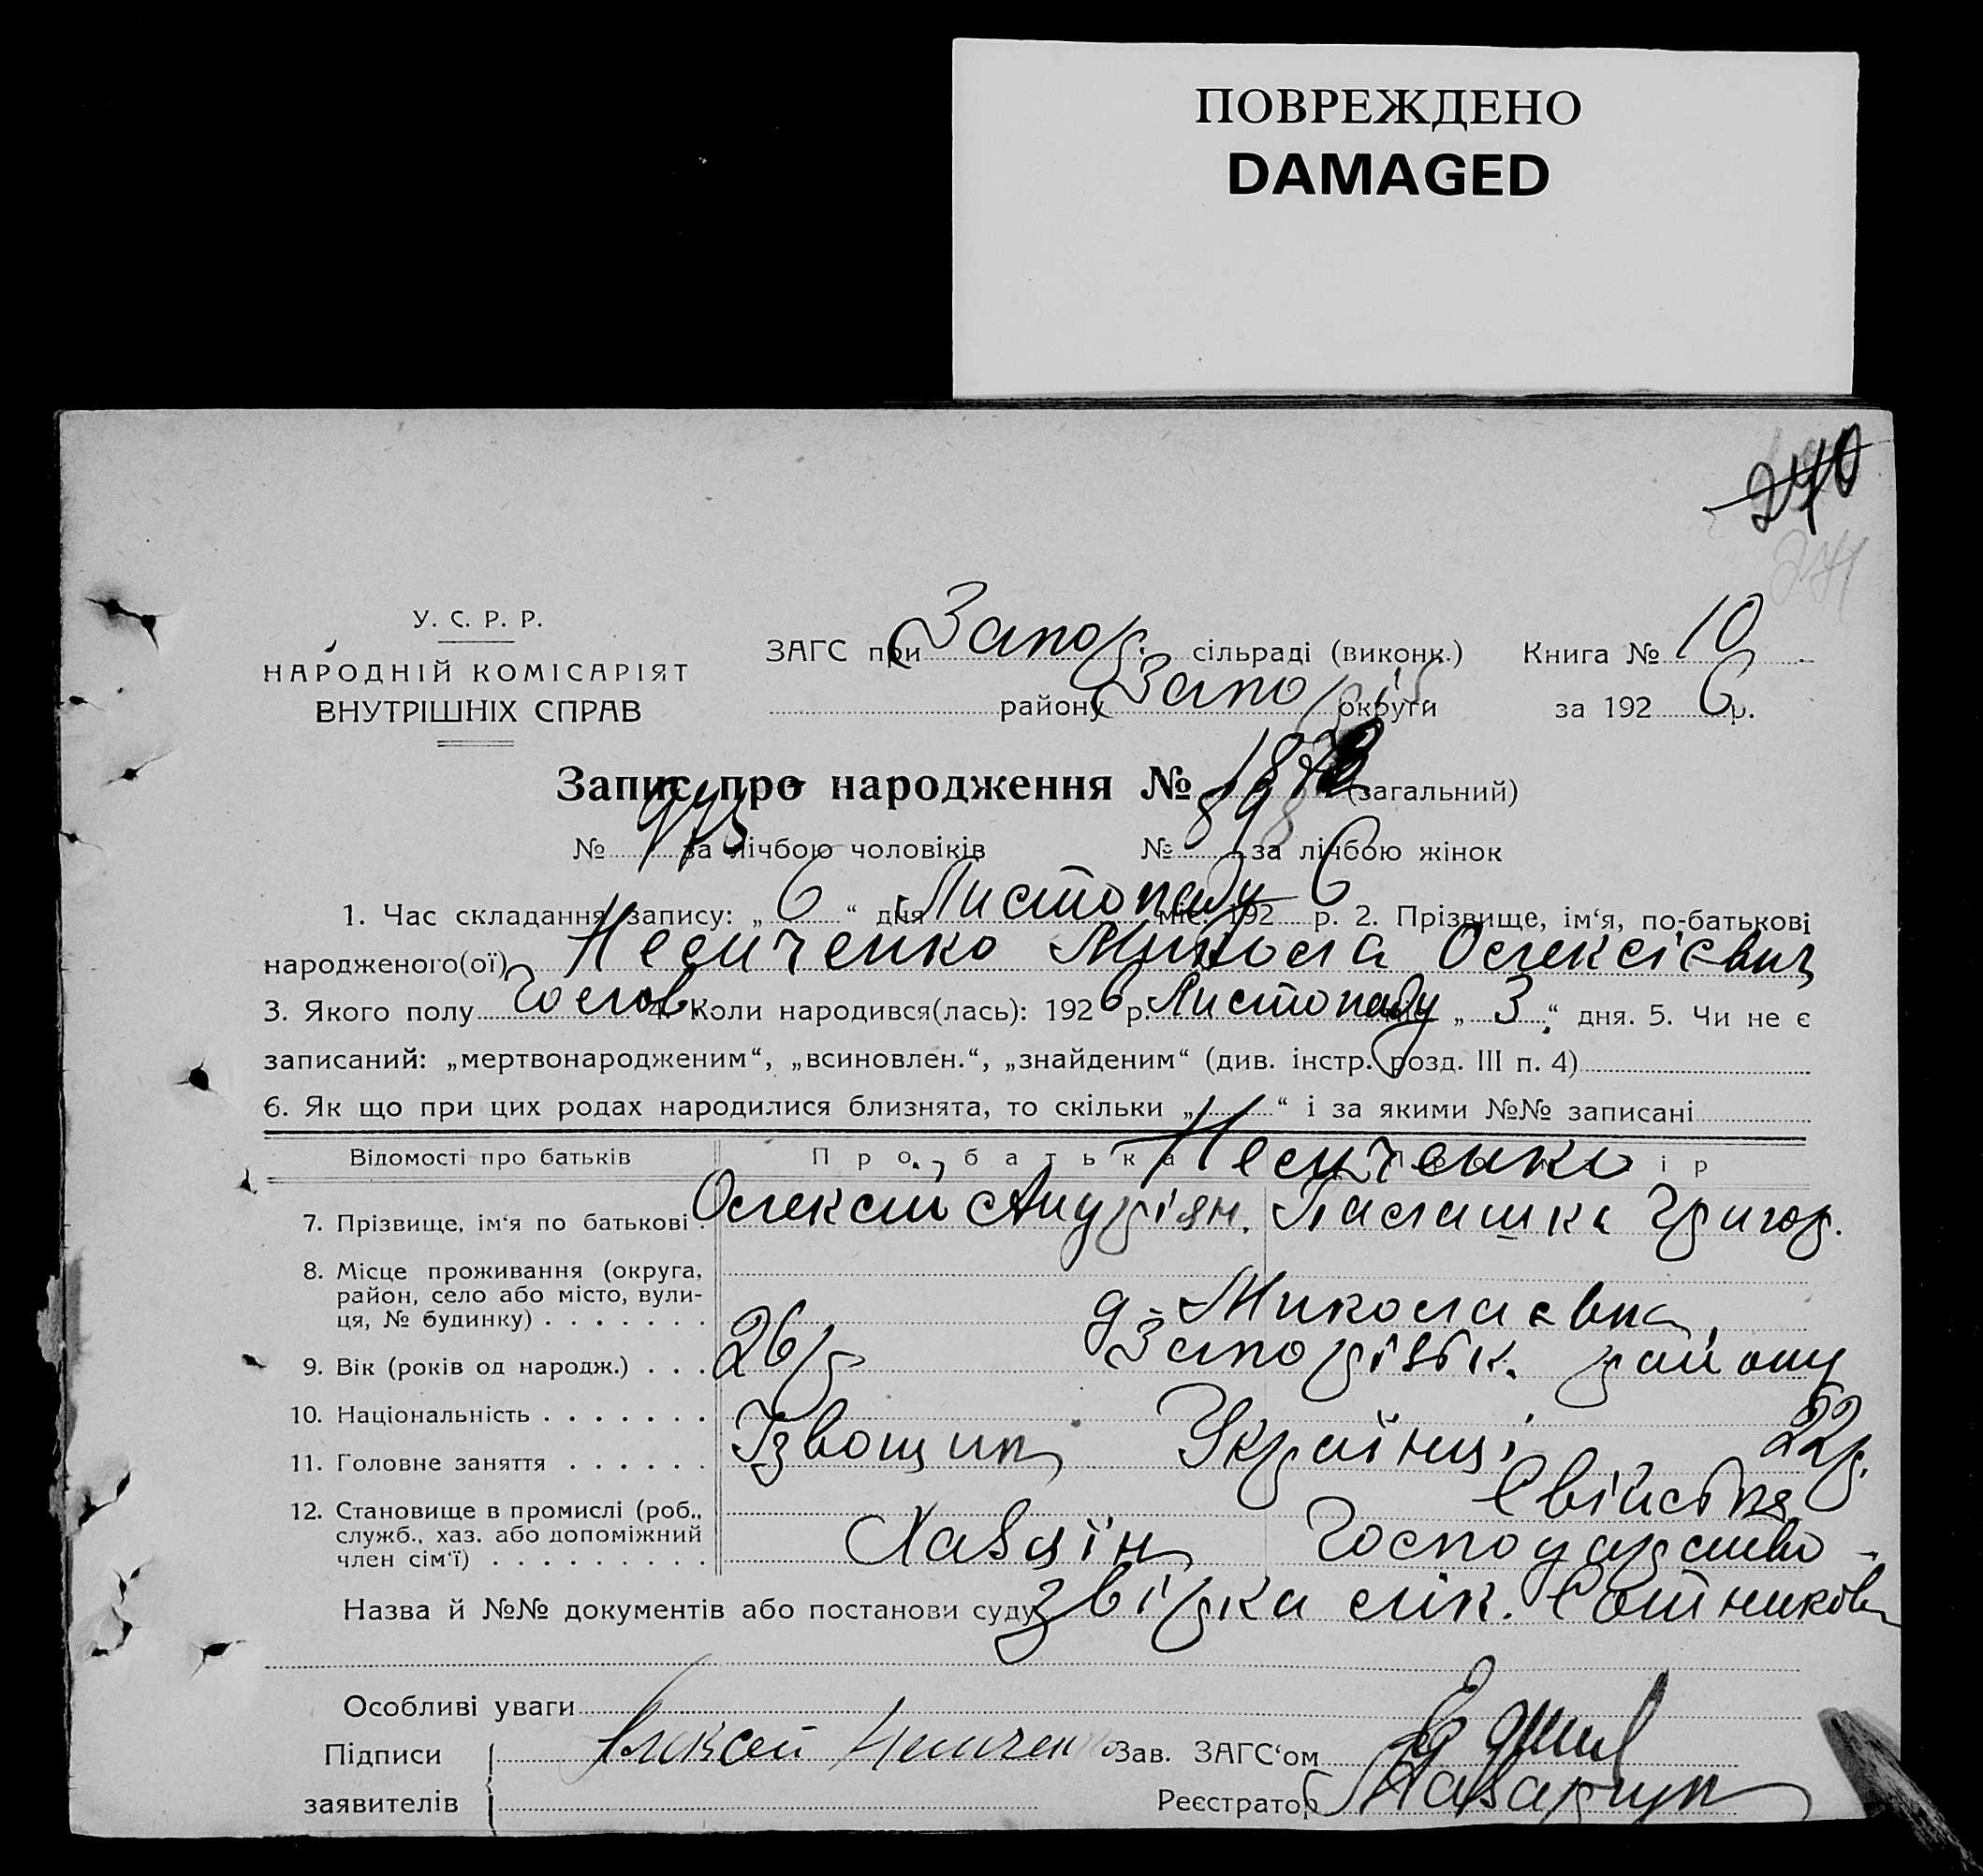 ПОВРЕЖДЕНО
DAMAGED
240
241
У. С. Р. Р.
НАРОДНІЙ КОМІСАРІЯТ
ВНУТРІШНІХ СПРАВ
ЗАГС при Запор. сільраді (виконк.) Книга № 10
району Запоріз округи за 1926 р.
Запис про народження № (загальний)
№ за лічбою чоловіків № за лічбою жінок
1. Час складання запису: „6“ дня Листопаду міс. 1926 р. 2. Прізвище, ім‘я, по-батькові
народженого(ої) Микола Олексієвич
3. Якого полу Чолов. 4. Коли народився(лась): 1926 р. Листопаду міс. „3“ дня. 5. Чи не є
записаний: „мертвонародженим“, „всиновлен.“, „знайденим“ (див. інстр. розд. III п. 4)
6. Як що при цих родах народилися близнята, то скільки „ “ і за якими №№ записані
Відомості про батьків Про батька
7. Прізвище, ім‘я по батькові Олексій Андріян. Палашка Григор.
8. Місце проживання (округа, район, село або місто, вулиця, № будинку) д. Миколаєвка,
Запорізьк. району
9. Вік (років од народж.) 26 р 22 р.
10. Національність Українці
11. Головне заняття Ізвощик Свійське
12. Становище в промислі (роб., служб., хаз. або допоміжний член сім‘ї) Хазяїн Господарство
Назва й №№ документів або постанови суду звірка лік. Сотникова
Особливі уваги
Підписи Алексей Зав. ЗАГС‘ом
заявителів Реєстратор